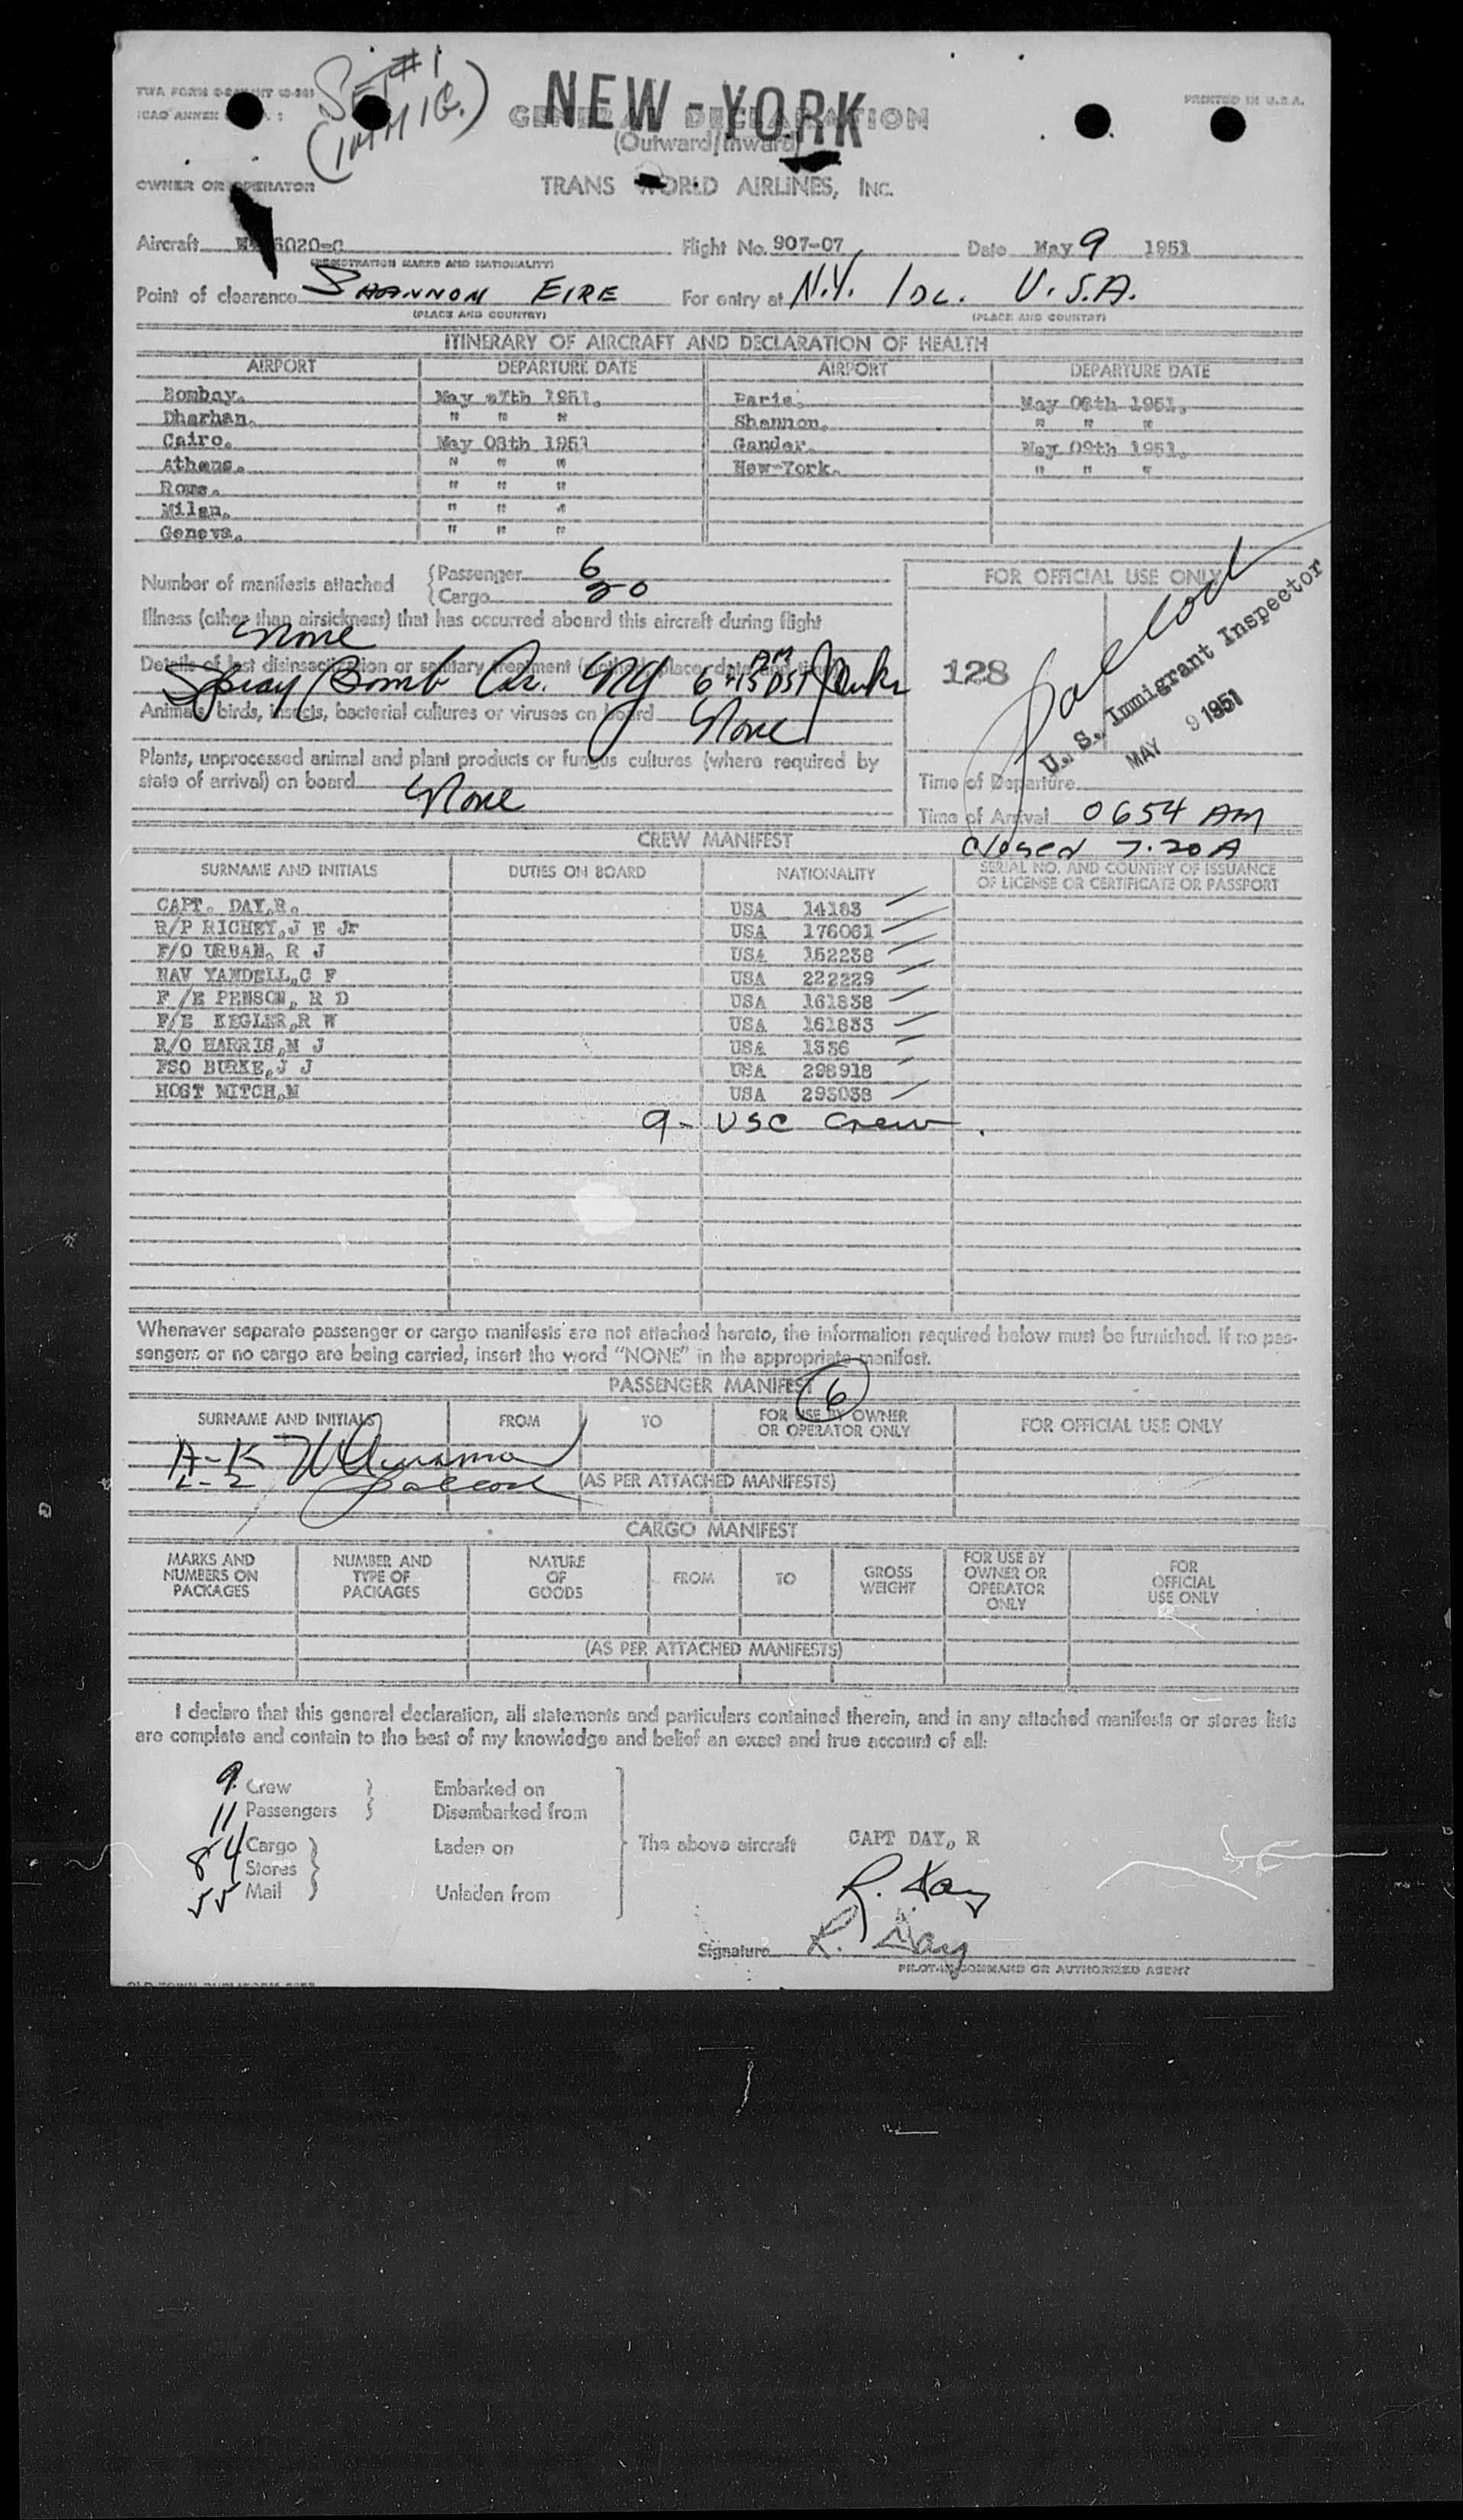 SET #1
(IMMIG.)
NEW-YORK
PRINTED IN U.S.A.
GENERAL DECLARATION
(Outward/Inward)
OWNER OR OPERATOR
TRANS WORLD AIRLINES, INC.
Aircraft 6020-C Flight No. 907-07 Date May 9 1951
(REGISTRATION MARKS AND NATIONALITY)
Point of clearance SHANNON EIRE For entry at N.Y. IDL. U.S.A.
(PLACE AND COUNTRY) (PLACE AND COUNTRY)
ITINERARY OF AIRCRAFT AND DECLARATION OF HEALTH
AIRPORT DEPARTURE DATE AIRPORT DEPARTURE DATE
Bombay. May 07th 1951. Paris. May 08th 1951.
Dharhan. " " " Shannon. " " "
Cairo. May 08th 1951 Gander. May 09th 1951.
Athens. " " " New-York. " " "
Rome. " " "
Milan. " " "
Geneva. " " "
Number of manifests attached {Passenger 6
{Cargo 20
FOR OFFICIAL USE ONLY
Illness (other than airsickness) that has occurred aboard this aircraft during flight
None
Details of last disinsectization or sanitary treatment (method, place, date and time)
Spray Bomb Ar. NY 6:45 AM DST
128
U. S. Immigrant Inspector
MAY 9 1951
Animals, birds, insects, bacterial cultures or viruses on board None
Plants, unprocessed animal and plant products or fungus cultures (where required by
state of arrival) on board None
Time of Departure
Time of Arrival 0654 AM
closed 7.20 A
CREW MANIFEST
SURNAME AND INITIALS DUTIES ON BOARD NATIONALITY SERIAL NO. AND COUNTRY OF ISSUANCE
OF LICENSE OR CERTIFICATE OR PASSPORT
CAPT. DAY,R. USA 14183
R/P RICHEY,J E Jr USA 176061
F/O URBAN, R J USA 152238
NAV YANDELL,C F USA 222229
F /E PENSON, R D USA 161838
F/E KEGLER,R W USA 161833
R/O HARRIS,M J USA 1336
FSO BURKE,J J USA 298918
HOST MITCH,M USA 293038
9- USC Crew.
Whenever separate passenger or cargo manifests are not attached hereto, the information required below must be furnished. If no pas-
sengers or no cargo are being carried, insert the word "NONE" in the appropriate manifest.
PASSENGER MANIFEST 6
SURNAME AND INITIALS FROM TO FOR USE BY OWNER
OR OPERATOR ONLY FOR OFFICIAL USE ONLY
A-K
L-Z
(AS PER ATTACHED MANIFESTS)
CARGO MANIFEST
MARKS AND
NUMBERS ON
PACKAGES NUMBER AND
TYPE OF
PACKAGES NATURE
OF
GOODS FROM TO GROSS
WEIGHT FOR USE BY
OWNER OR
OPERATOR
ONLY FOR
OFFICIAL
USE ONLY
(AS PER ATTACHED MANIFESTS)
I declare that this general declaration, all statements and particulars contained therein, and in any attached manifests or stores lists
are complete and contain to the best of my knowledge and belief an exact and true account of all:
9 Crew } Embarked on
11 Passengers } Disembarked from
84 Cargo } Laden on The above aircraft CAPT DAY, R
Stores
55 Mail } Unladen from
R. Day
Signature R. Day
PILOT-IN-COMMAND OR AUTHORIZED AGENT